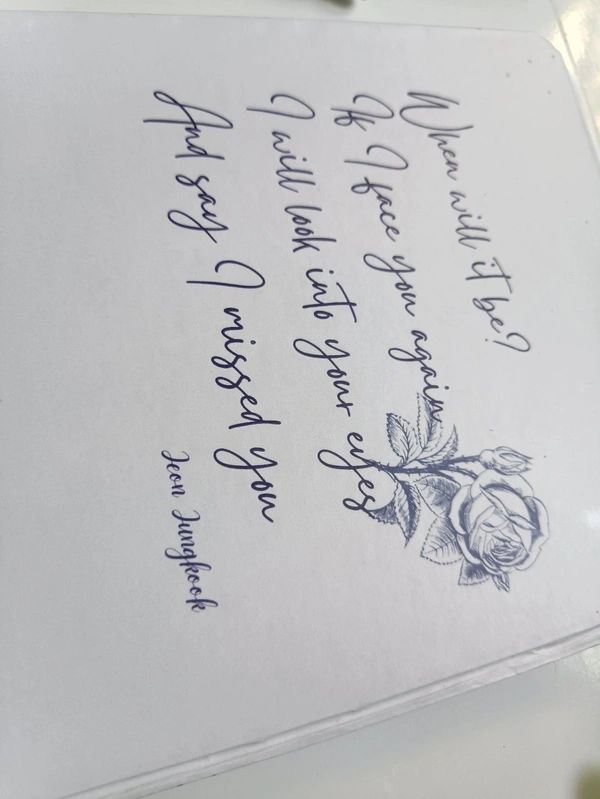 When will it be?
If I face you again
I will look into your eyes
And say I missed you
Jeon Jungkook